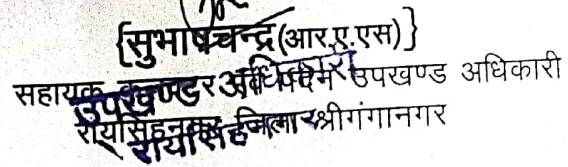 {सुभाषचन्द्र(आर.ए.एस)}
सहायक कलक्टर उपखण्ड अधिकारी
उपखण्ड अधिकारी
रायसिंहनगर जिला श्रीगंगानगर
रायसिंहनगर